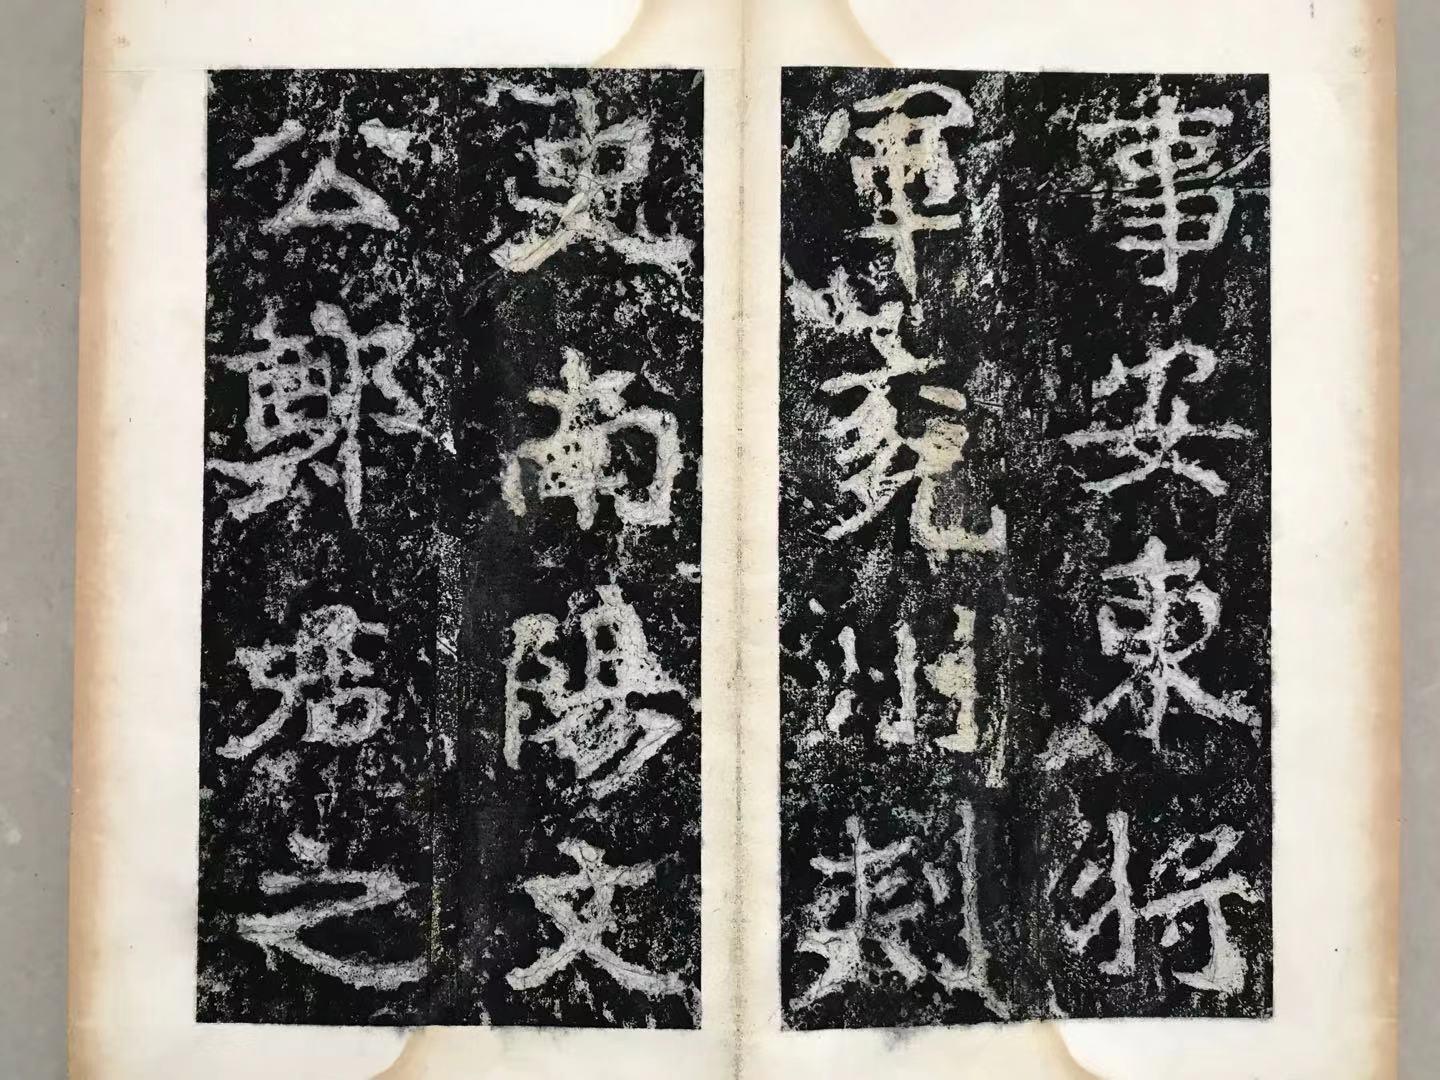 事安東将
軍兗州刺
史南陽文
公鄭君之